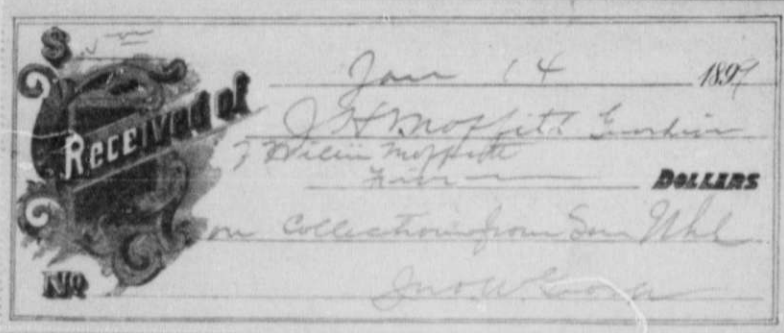 $ 5 00
Jan 14 1897
Received of J H Moffitt Guardian
of Willie Moffitt
Five DOLLARS
on Collection from Sam
No
Jno. W.